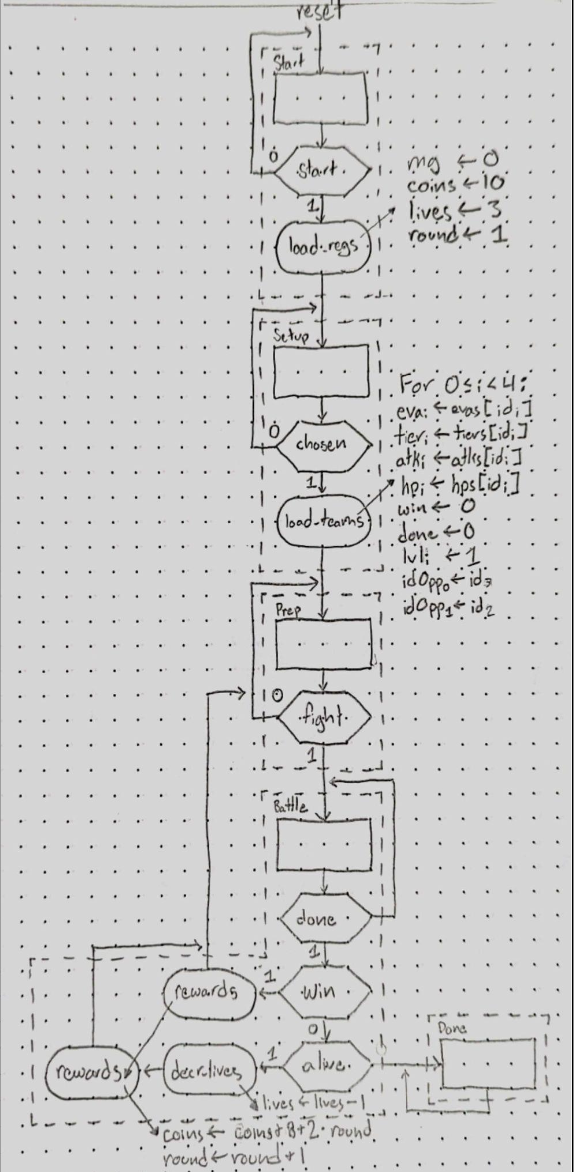 reset
Start
0
start
1
load-regs
mg ← 0
coins ← 10
lives ← 3
round ← 1
Setup
0
chosen
1
load-teams
For 0 ≤ i < 4:
evai ← evas[idi]
tieri ← tiers[idi]
atki ← atks[idi]
hpi ← hps[idi]
win ← 0
done ← 0
lvli ← 1
idOpp0 ← id3
idOpp1 ← id2
Prep
0
fight
1
Battle
done
1
win
1
rewards
0
alive
1
decr-lives
rewards
Done
lives ← lives-1
coins ← coins+8+2·round
round ← round+1